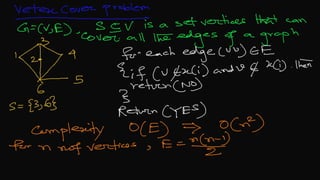 Vertex Cover problem
G=(V,E). S ⊆ V is a set vertices that can
cover all the edges of a graph
3
1
2
4
6
5
S = {3,6}
for each edge (U V) ∈ E
{ if (U ∉ x(i) and v ∉ x(i). then
return(NO)
}
Return (YES)
Complexity O(E) ⇒ O(n²)
for n no of vertices, E = n(n-1)
2